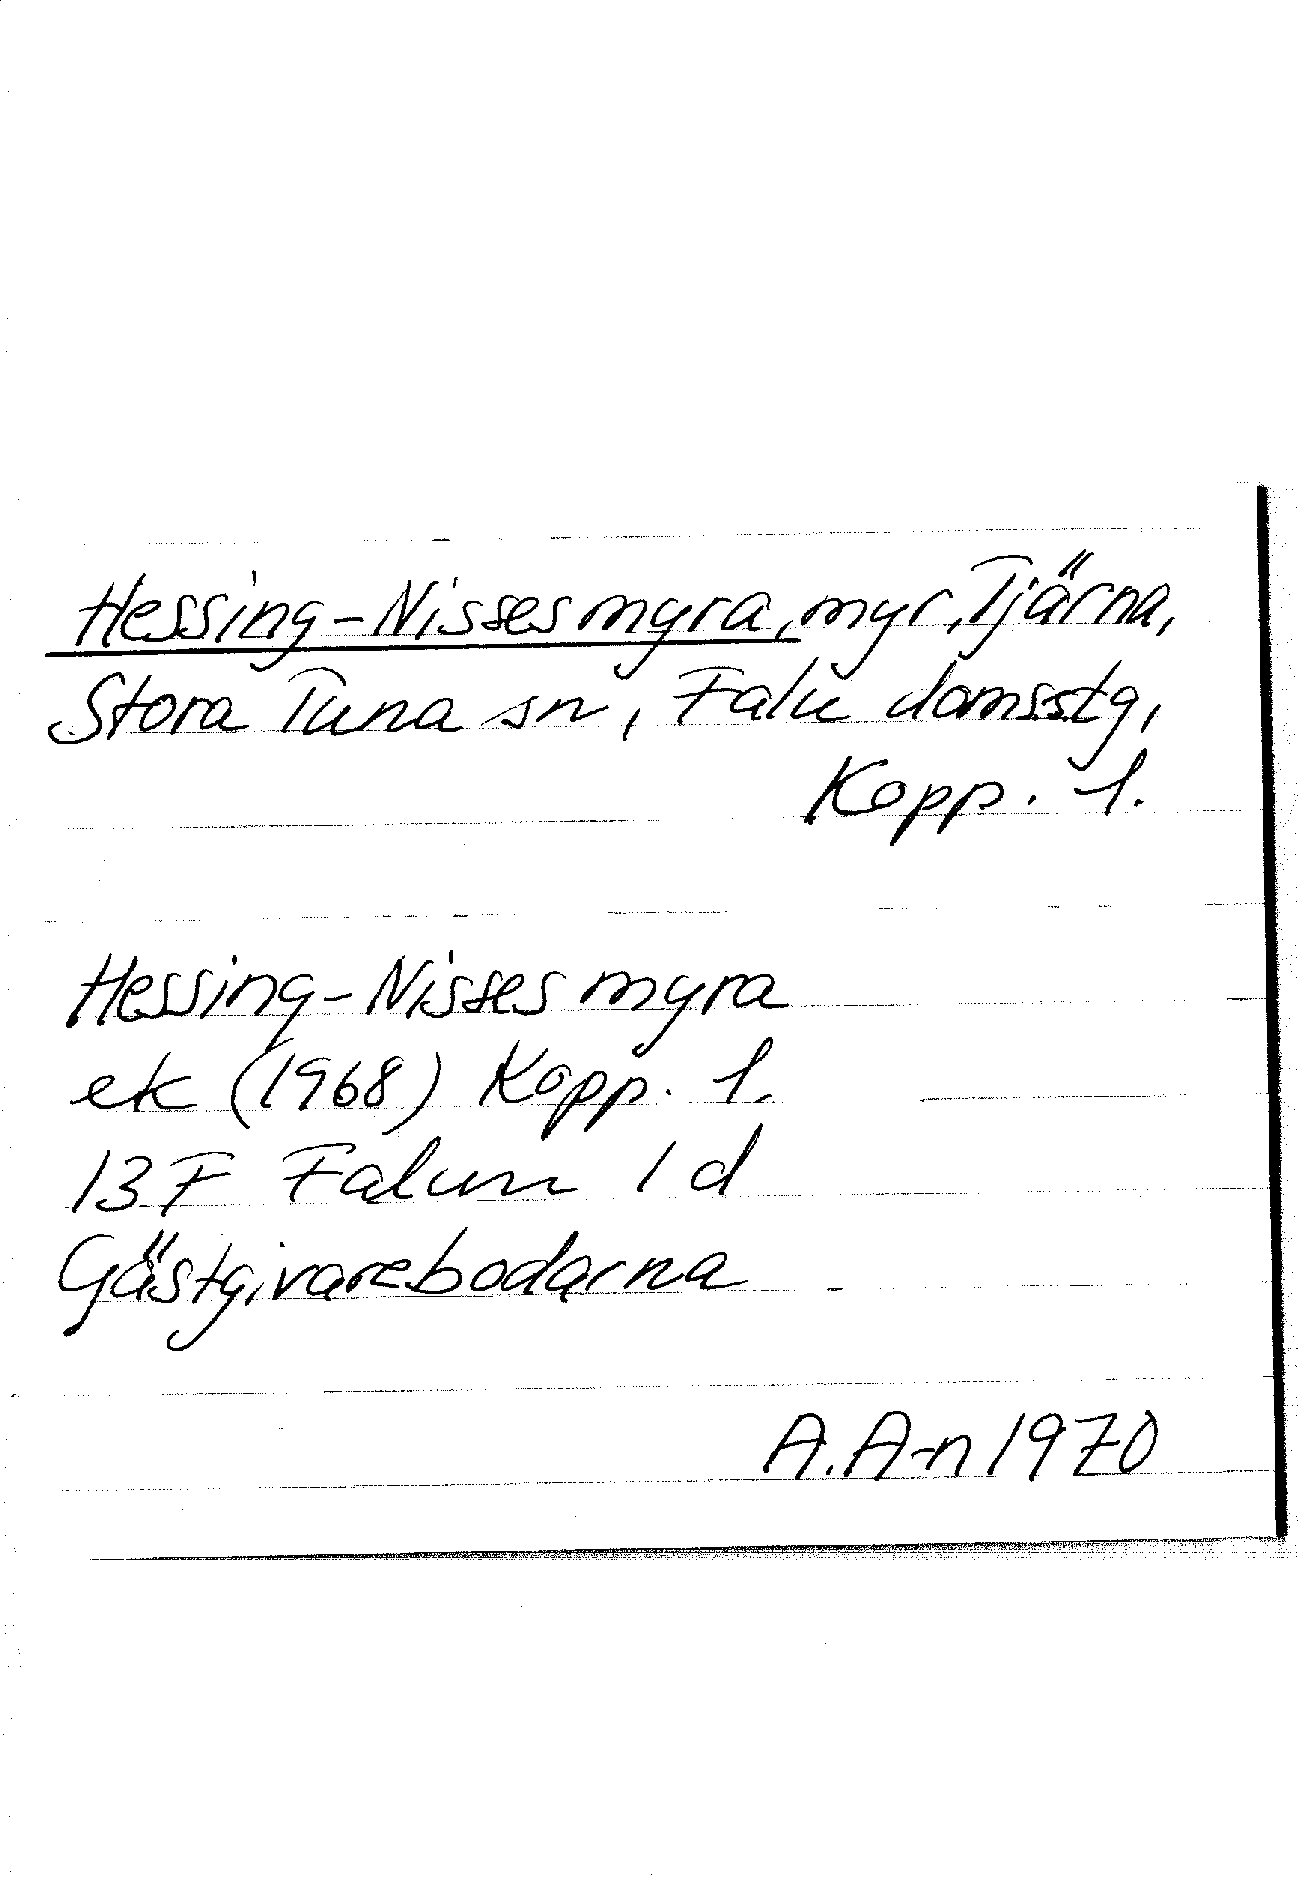 Hessing-Nisses myra, myr, Tjärna,
Stora Tuna sn, Falu domsstg,
Kopp. l.
Hessing-Nisses myra
ek (1968) Kopp. l.
13F Falun 1 d
Gästgivarebodarna
A.A-n 1970